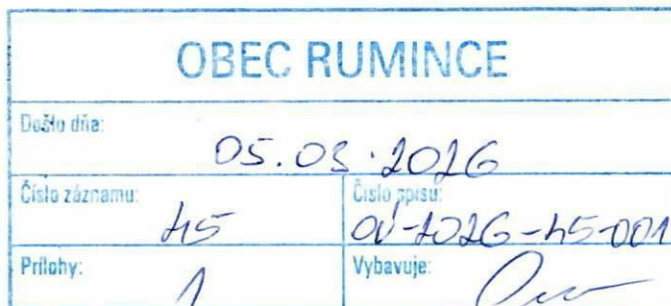 OBEC RUMINCE
Došlo dňa:
05.03.2026
Číslo záznamu:
45
Číslo spisu:
OÚ-2026-45-001
Prílohy:
1
Vybavuje: